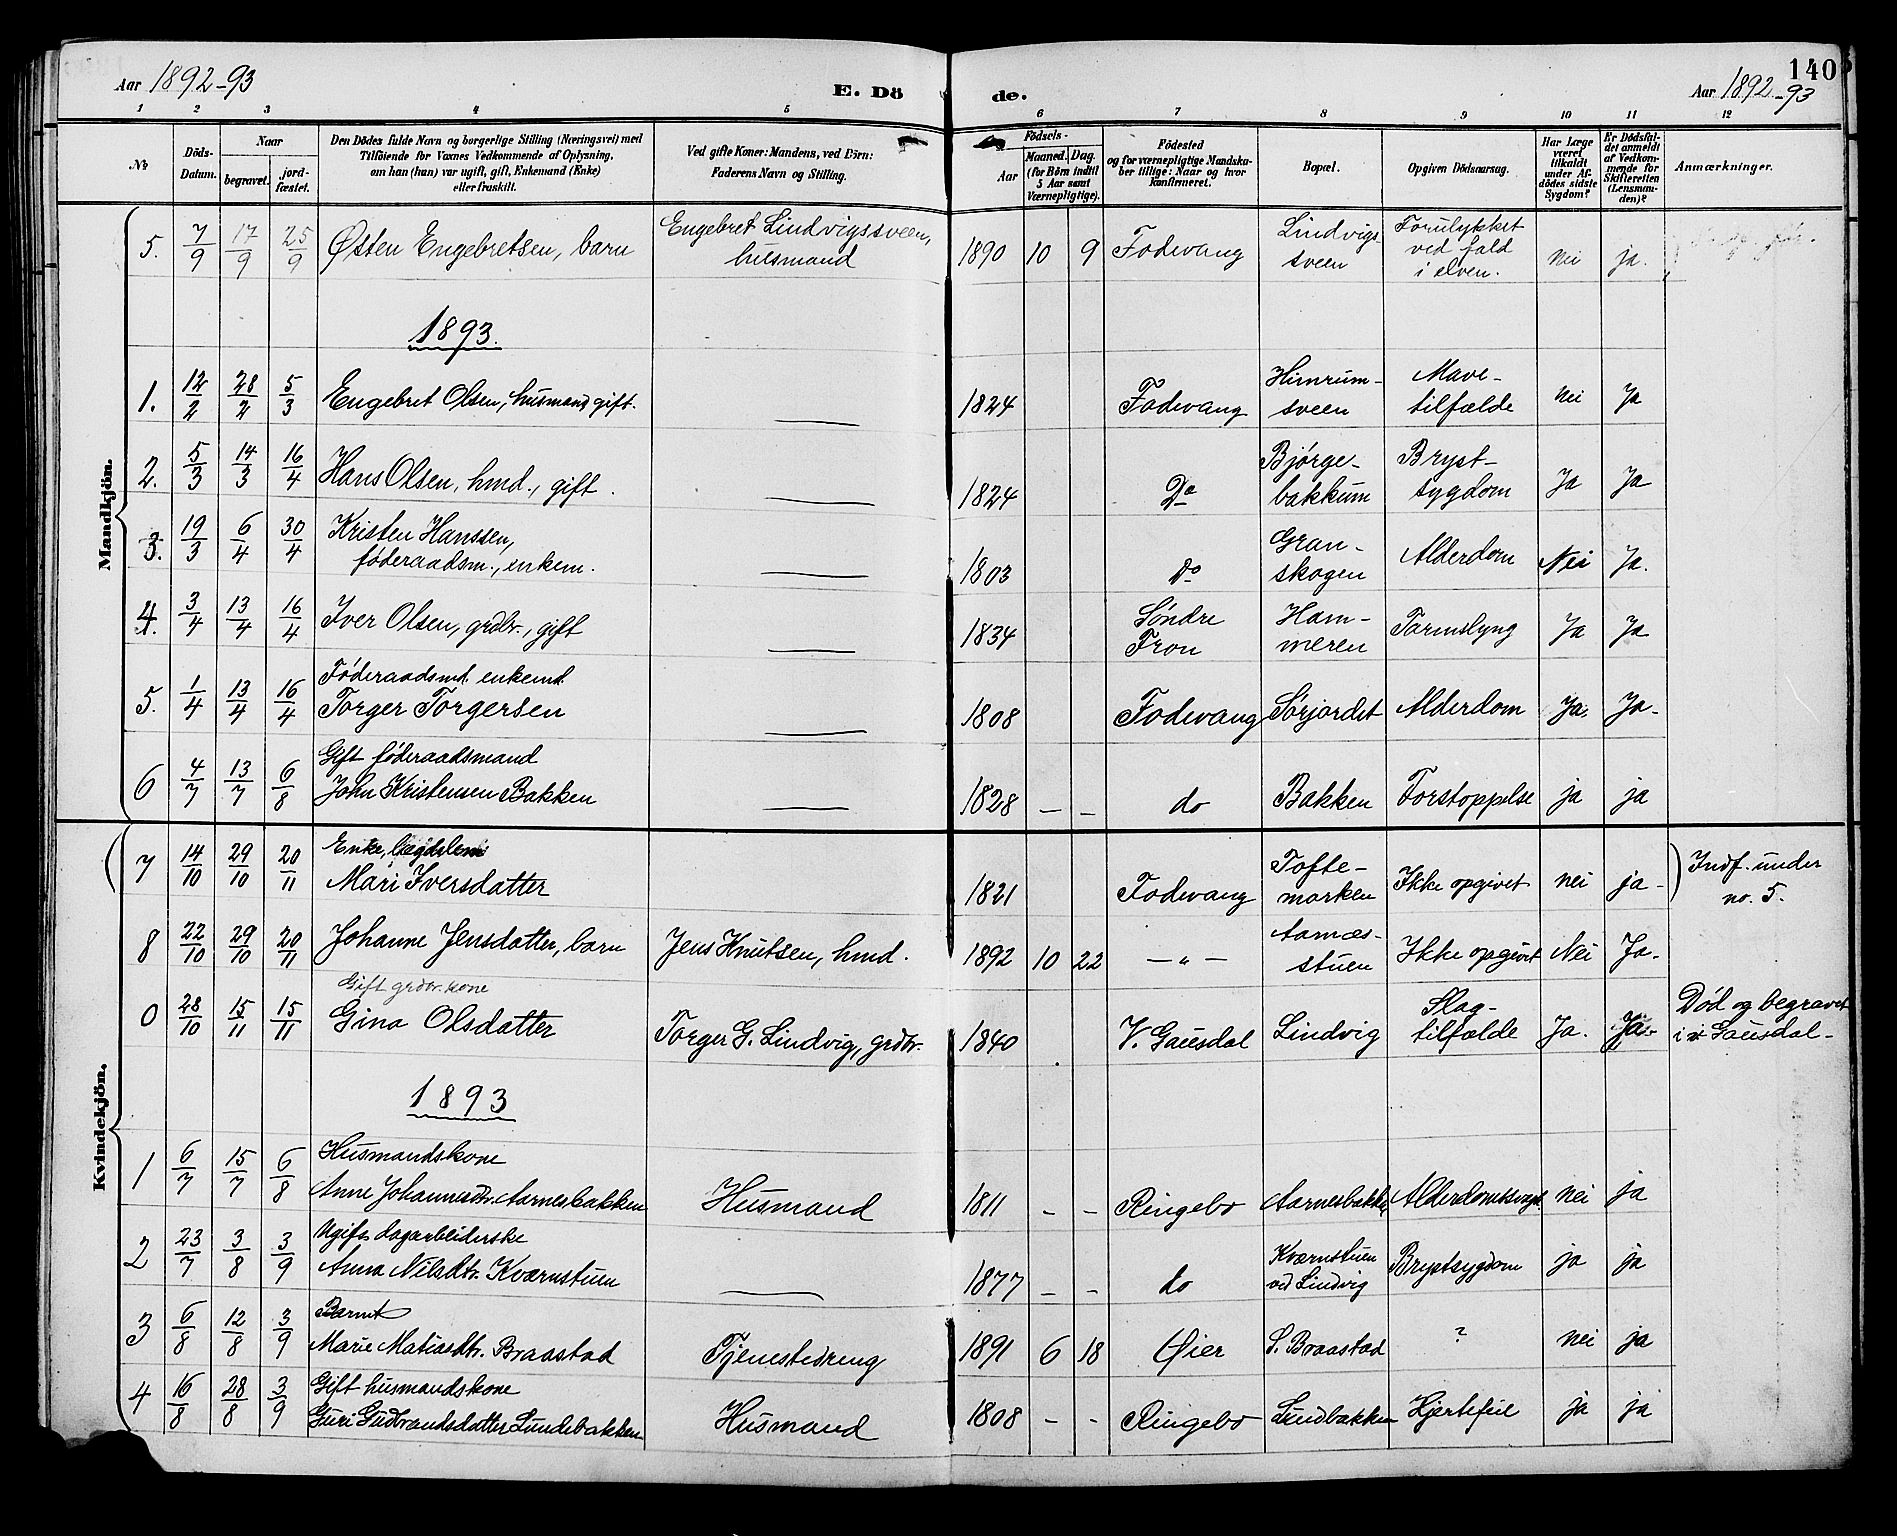 140
Aar 1892-93 E. Dö de. Aar 1892-93
1 2 3 4 5 6 7 8 9 10 11 12
No Döds-Datum. Naar begravet. jord-fæstet. Den Dödes fulde Navn og borgerlige Stilling (Næringsvei) med Tilföiende for Voxnes Vedkommende af Oplysning, om han (hun) var ugift, gift, Enkemand (Enke) eller fraskilt. Ved gifte Koner: Mandens, ved Börn: Faderens Navn og Stilling. Födsels- Aar Maaned. Dag. (for Börn indtil 5 Aar samt Værnepligtige). Födested og for værnepligtige Mandskaber tillige: Naar og hvor konfirmeret. Bopæl. Opgiven Dödsaarsag. Har Læge været tilkaldt under Afdödes sidste Sygdom? Er Dödsfaldet anmeldt af Vedkommende for Skifteretten (Lensmanden)? Anmærkninger.
Mandkjön.
5. 7/9 17/9 25/9 Østen Engebretsen, barn Engebret Lindvigssveen, husmand 1890 10 9 Fodvang Lindvigssveen Forulykket ved fald i elven. nei ja.
1893.
1. 12/2 28/2 5/3 Engebret Olsen, husmand gift. 1824 Fodvang Himrumsveen Mave-tilfælde nei Ja
2. 5/3 14/3 16/4 Hans Olsen, hmd., gift. 1824 Do Bjørgebakkum Bryst-sygdom Ja Ja
3. 19/3 6/4 30/4 Kristen Hanssen, føderaadsm., enkem. 1803 Do Granskogen Alderdom Nei Ja.
4. 3/4 13/4 16/4 Iver Olsen, grdbr., gift 1834 Søndre Fron Hammeren Tarmslyng Ja Ja
5. 1/4 13/4 16/4 Føderaadsmd. enkemd. Torger Torgersen 1808 Fodvang Sørjordet Alderdom Ja. Ja.
6 4/7 13/7 6/8 Gift føderaadsmand John Kristensen Bakken 1828 – – do Bakken Forstoppelse ja ja
Kvindekjön.
7 14/10 29/10 20/11 Enke, Mari Iversdatter 1821 Fodvang Toftemorken Ikke opgivet nei ja. Indf. under no. 5.
8 22/10 29/10 20/11 Johanne Jensdatter, barn Jens Knutsen, hmd. 1892 10 22 – „ – Aarnæsstuen Ikke opgivet Nei Ja.
0 28/10 15/11 15/11 Gift grdbr. kone Gina Olsdatter Torger G. Lindvig, grdbr. 1840 V. Gausdal Lindvig Slag-tilfælde Ja. Ja. Død og begravet i v Gausdal.
1893
1 6/7 15/7 6/8 Husmandskone Anne Johannesdtr. Aarnesbakken Husmand 1811 – – Ringebo Aarnesbakken nei ja
2 23/7 3/8 3/9 Ugift dagarbeiderske Anna Nilsdtr. Kværnstuen 1877 – – do Kværnstuen ved Lindvig Brystsygdom ja ja
3 6/8 12/8 3/9 Barnet Marie Matiasdtr. Braastad Tjenestedreng 1891 6 18 Øier S. Braastad ? nei ja
4 16/8 28/8 3/9 Gift husmandskone Guri Gudbrandsdatter Lundebakken Husmand 1808 – – Ringebo Lundbakken Hjertefeil ja ja